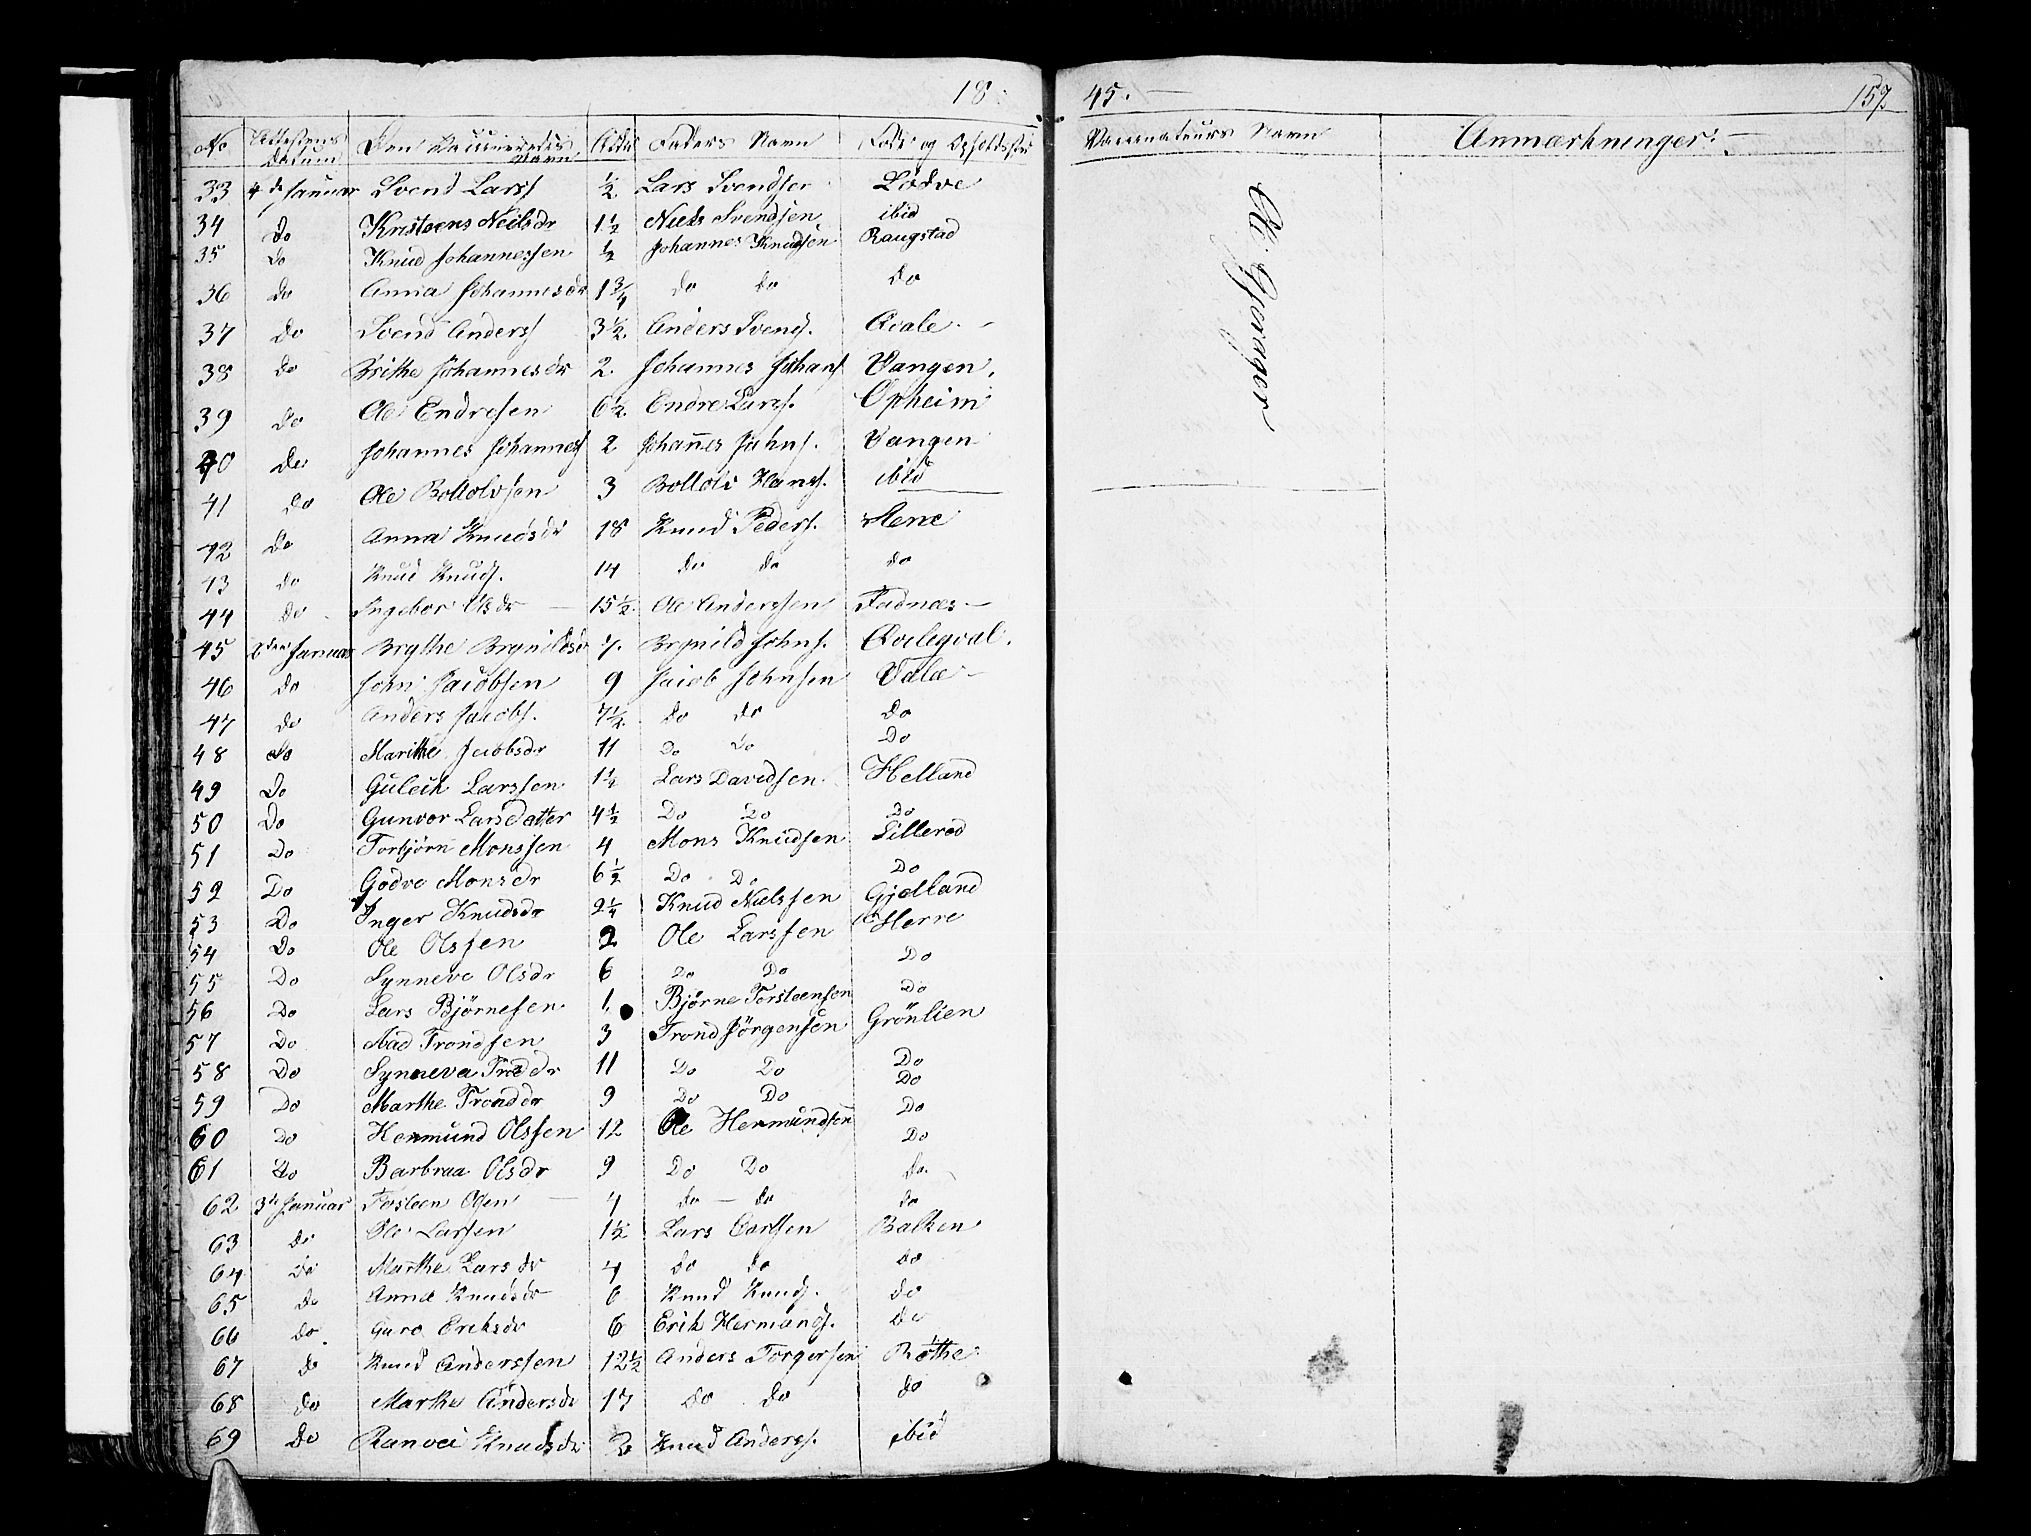 18
45.
157
No Attestens Datum Den Vaccineredes Navn Alder Faders Navn Føde og Opholdssted Vaccinateurs Navn Anmærkninger:
33 4de Januar Svend Larss ½ Lars Svendsen Lødve
34 Do Kristœns Neilsdr 1½ Niels Svendsen ibid
35 Do Knud Johannessen ½ Johannes Knudsen Raugstad
36 do Anna Johannesdr 1¾ do do do
37 do Svend Anderss 3½ Anders Svends. Qvale
38 do Brithe Johannesdr 2. Johannes Johans Vangen.
39 do Ole Endresen 6½ Endre Larss. Opheim
40 do Johannes Johanness 2 Johañes Johns. Vangen
41 do Ole Bottolvsen 3 Bottolv Hanss. ibid
42 do Anna Knudsdr 18 Knud Peders.
43 do Knud Knuds. 14 do do do
44 do Ingebor Olsdr 15½ Ole Anderssen Fadnœs
45 2den Januar Brythe Brynildsdr 7. Brynild Johns. Qvaleqval.
46 do John Jacobsen 9 Jacob Johnsen
47 do Anders Jacobs. 7½ do do do
48 Do Marithe Jacobsdr 11 Do Do Do
49 Do Guleik Larssen Lars Davidsen Helland
50 Do Gunvor Larsdatter 4½ Do Do Do
51 Do Torbjørn Monssen 4 Mons Knudsen Lillerød
52 Do Godve Monsdr 6½ Do Do Do
53 Do Inger Knudsdr 2¼ Knud Nielssen Gjelland
54 Do Ole Olssen 2 Ole Larssen Herre
55 Do Synneve Olsdr 6 Do Do Do
56 Do Lars Bjørnesen 1. Bjørne Torsteensen Do
57 Do Aad Trondsen 3 Trond Jörgensen Grönlien
58 Do Synneva Trddr 11 Do Do Do
59 Do Marthe Tronddr 9 Do Do Do
60 Do Hermund Olssen 12 Ole Hermundsen Do
61 Do Barbraa Olsdr 9 Do Do Do
62 3de Januar Torsteen Olsen 4 do do do
63 do Ole Larsen 1½ Lars Balken
64 do Marthe Larsdr 4 do do do
65 do Anna Knudsdr 6 Knud Knuds. do
66 do Guro Eriksdr 6 Erik Hermands. do
67 do Knud Anderssen 12½ Anders Torgersen Röthe
68 do Marthe Andersdr 17 do do do
69 Do Ranvei Knudsdr 2 Knud Anderss. ibid
O. Gjerager